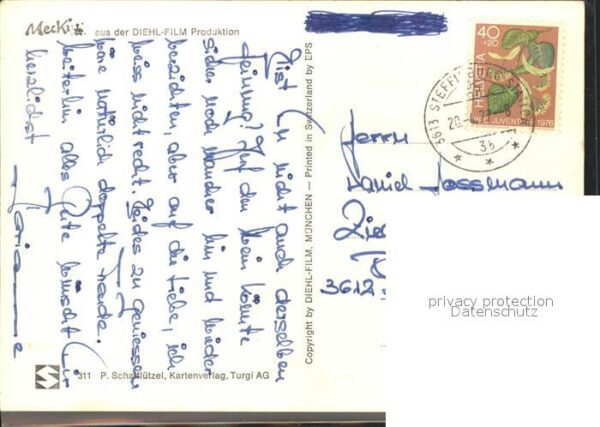 Mecki
aus der DIEHL-FILM Produktion
Bist Du nicht auch derselben
Meinung? Auf den Wein könnte
sicher noch mancher hin und wieder
verzichten, aber auf die Liebe, ich
weiss nicht recht. Beides zu geniessen
wäre natürlich doppelte Freude.
Weiterhin alles Gute wünscht Dir
herzlichst
Marianne
Copyright by DIEHL-FILM, MÜNCHEN — Printed in Switzerland by EPS
311 P. Schaflützel, Kartenverlag, Turgi AG
40
+20
HELVETIA
PRO JUVENTUTE 1976
3613 STEFFISBURG
20.
3b
Herrn
Daniel Jossmann
3612
privacy protection
Datenschutz